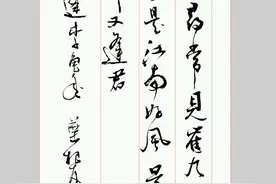 尋常見崔九
是江南好風
又逢君
逢李龜年 葉根友